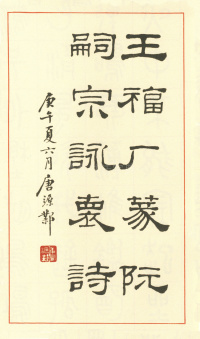 王福厂篆阮
嗣宗詠褱詩
庚午夏六月唐源鄴